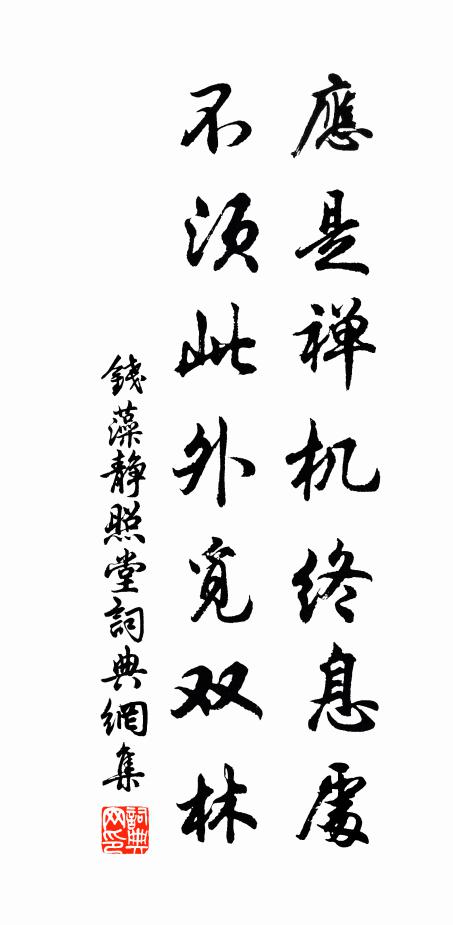 應是禅机终息處
不须此外觅双林
錢藻静照堂詞典網集
詞典网印